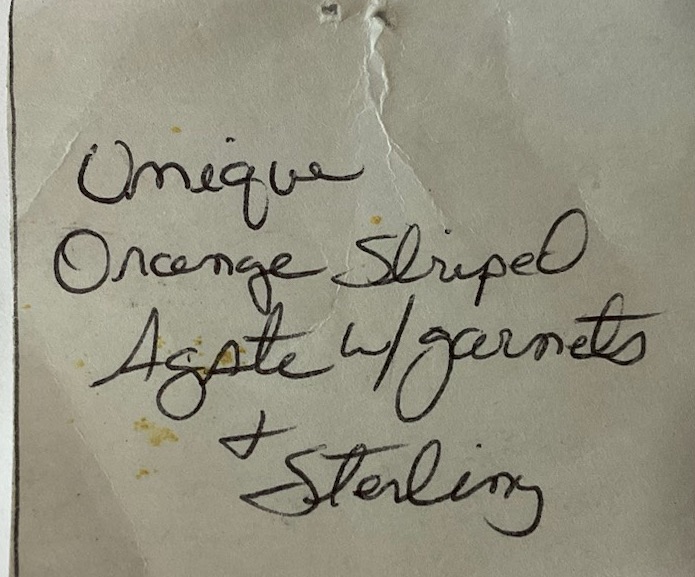 Unique
Orange Striped
Agate w/garnets
+
Sterling